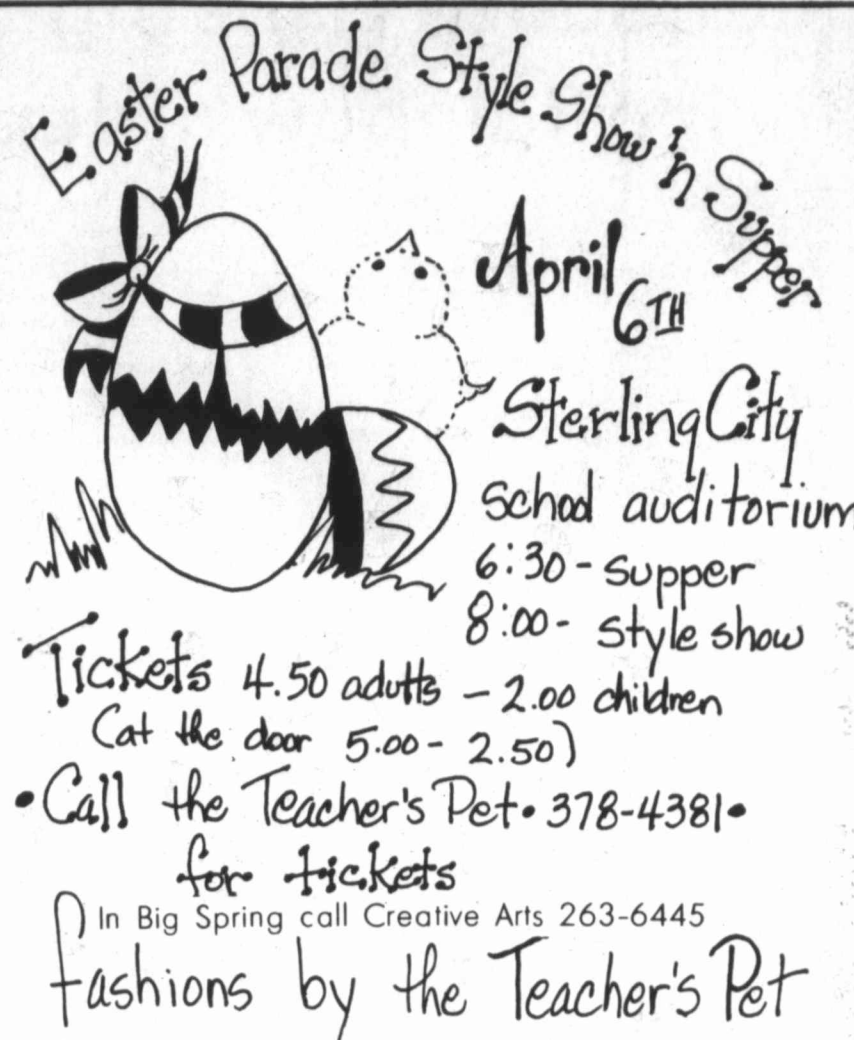 Easter Parade Style Show 'n Supper
April 6TH
Sterling City
school auditorium
6:30 - supper
8:00 - style show
Tickets 4.50 adults - 2.00 children
(at the door 5.00 - 2.50)
• Call the Teacher's Pet • 378-4381 •
for tickets
In Big Spring call Creative Arts 263-6445
fashions by the Teacher's Pet